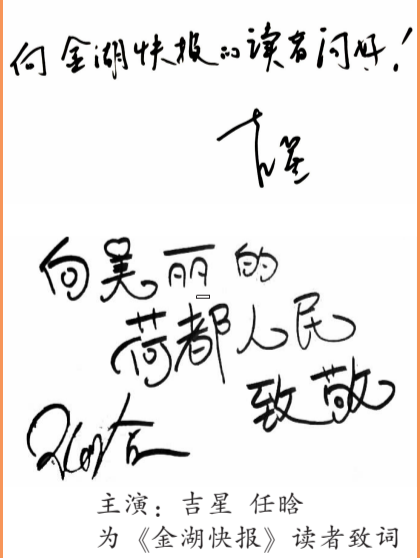 向金湖快报的读者问好！
吉星
向美丽的
荷都人民
致敬
主演：吉星 任晗
为《金湖快报》读者致词